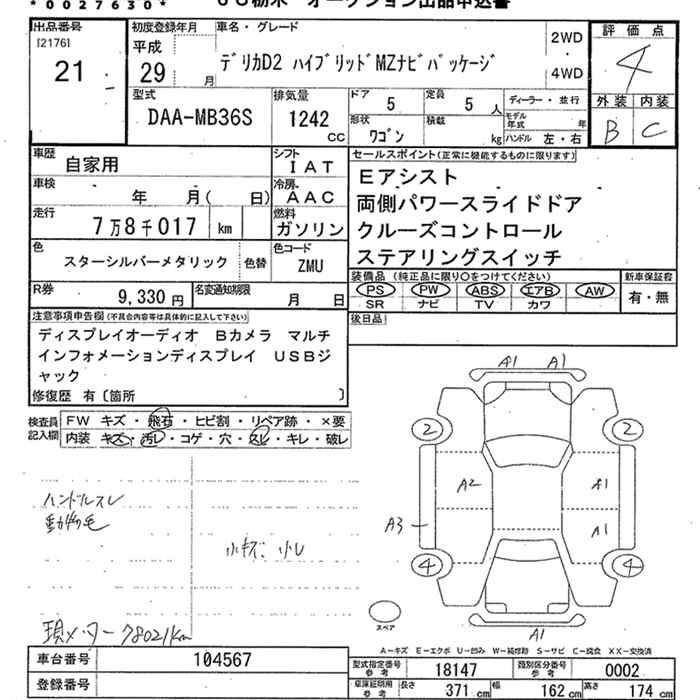 *0027630*
USS栃木 オークション出品申込書
出品番号
[2176]
21
初度登録年月
平成
29 月
車名・グレード
デリカD2 ハイブリッドMZナビパッケージ
2WD
・
4WD
評価点
4
外装 内装
B C
型式
DAA-MB36S
排気量
1242
cc
ドア
5
定員
5 人
形状
ワゴン
積載
kg
ディーラー・並行
モデル年式 年
ハンドル 左・右
車歴
自家用
シフト
IAT
車検
年 月( 日)
冷房
AAC
走行
7万8千017 km
燃料
ガソリン
色
スターシルバーメタリック
色替
色コード
ZMU
R券
9,330円
名変通知期限
月 日
セールスポイント(正常に機能するものに限ります)
Eアシスト
両側パワースライドドア
クルーズコントロール
ステアリングスイッチ
装備品 (純正品に限り○をつけてください)
PS PW ABS エアB AW
SR ナビ TV カワ
新車保証書
有・無
後日品
注意事項申告欄(不具合内容等は具体的に記入して下さい)
ディスプレイオーディオ Bカメラ マルチ
インフォメーションディスプレイ USBジ
ャック
修復歴 有〔箇所 〕
検査員
記入欄
FW キズ・飛石・ヒビ割・リペア跡・×要
内装 キズ・汚レ・コゲ・穴・スレ・キレ・破レ
ハンドルスレ
動物の毛
小キズ、小U
現メーター78021km
A1 A1
2 2
A2 A1
A3 A1
4 4
A1
スペア
A-キズ E-エクボ U-凹み W-補修跡 S-サビ C-腐食 XX-交換済
車台番号
104567
登録番号
型式指定番号
参考
18147
類別区分番号
参考
0002
車庫証明用
参考
長さ 371 cm
幅 162 cm
高さ 174 cm